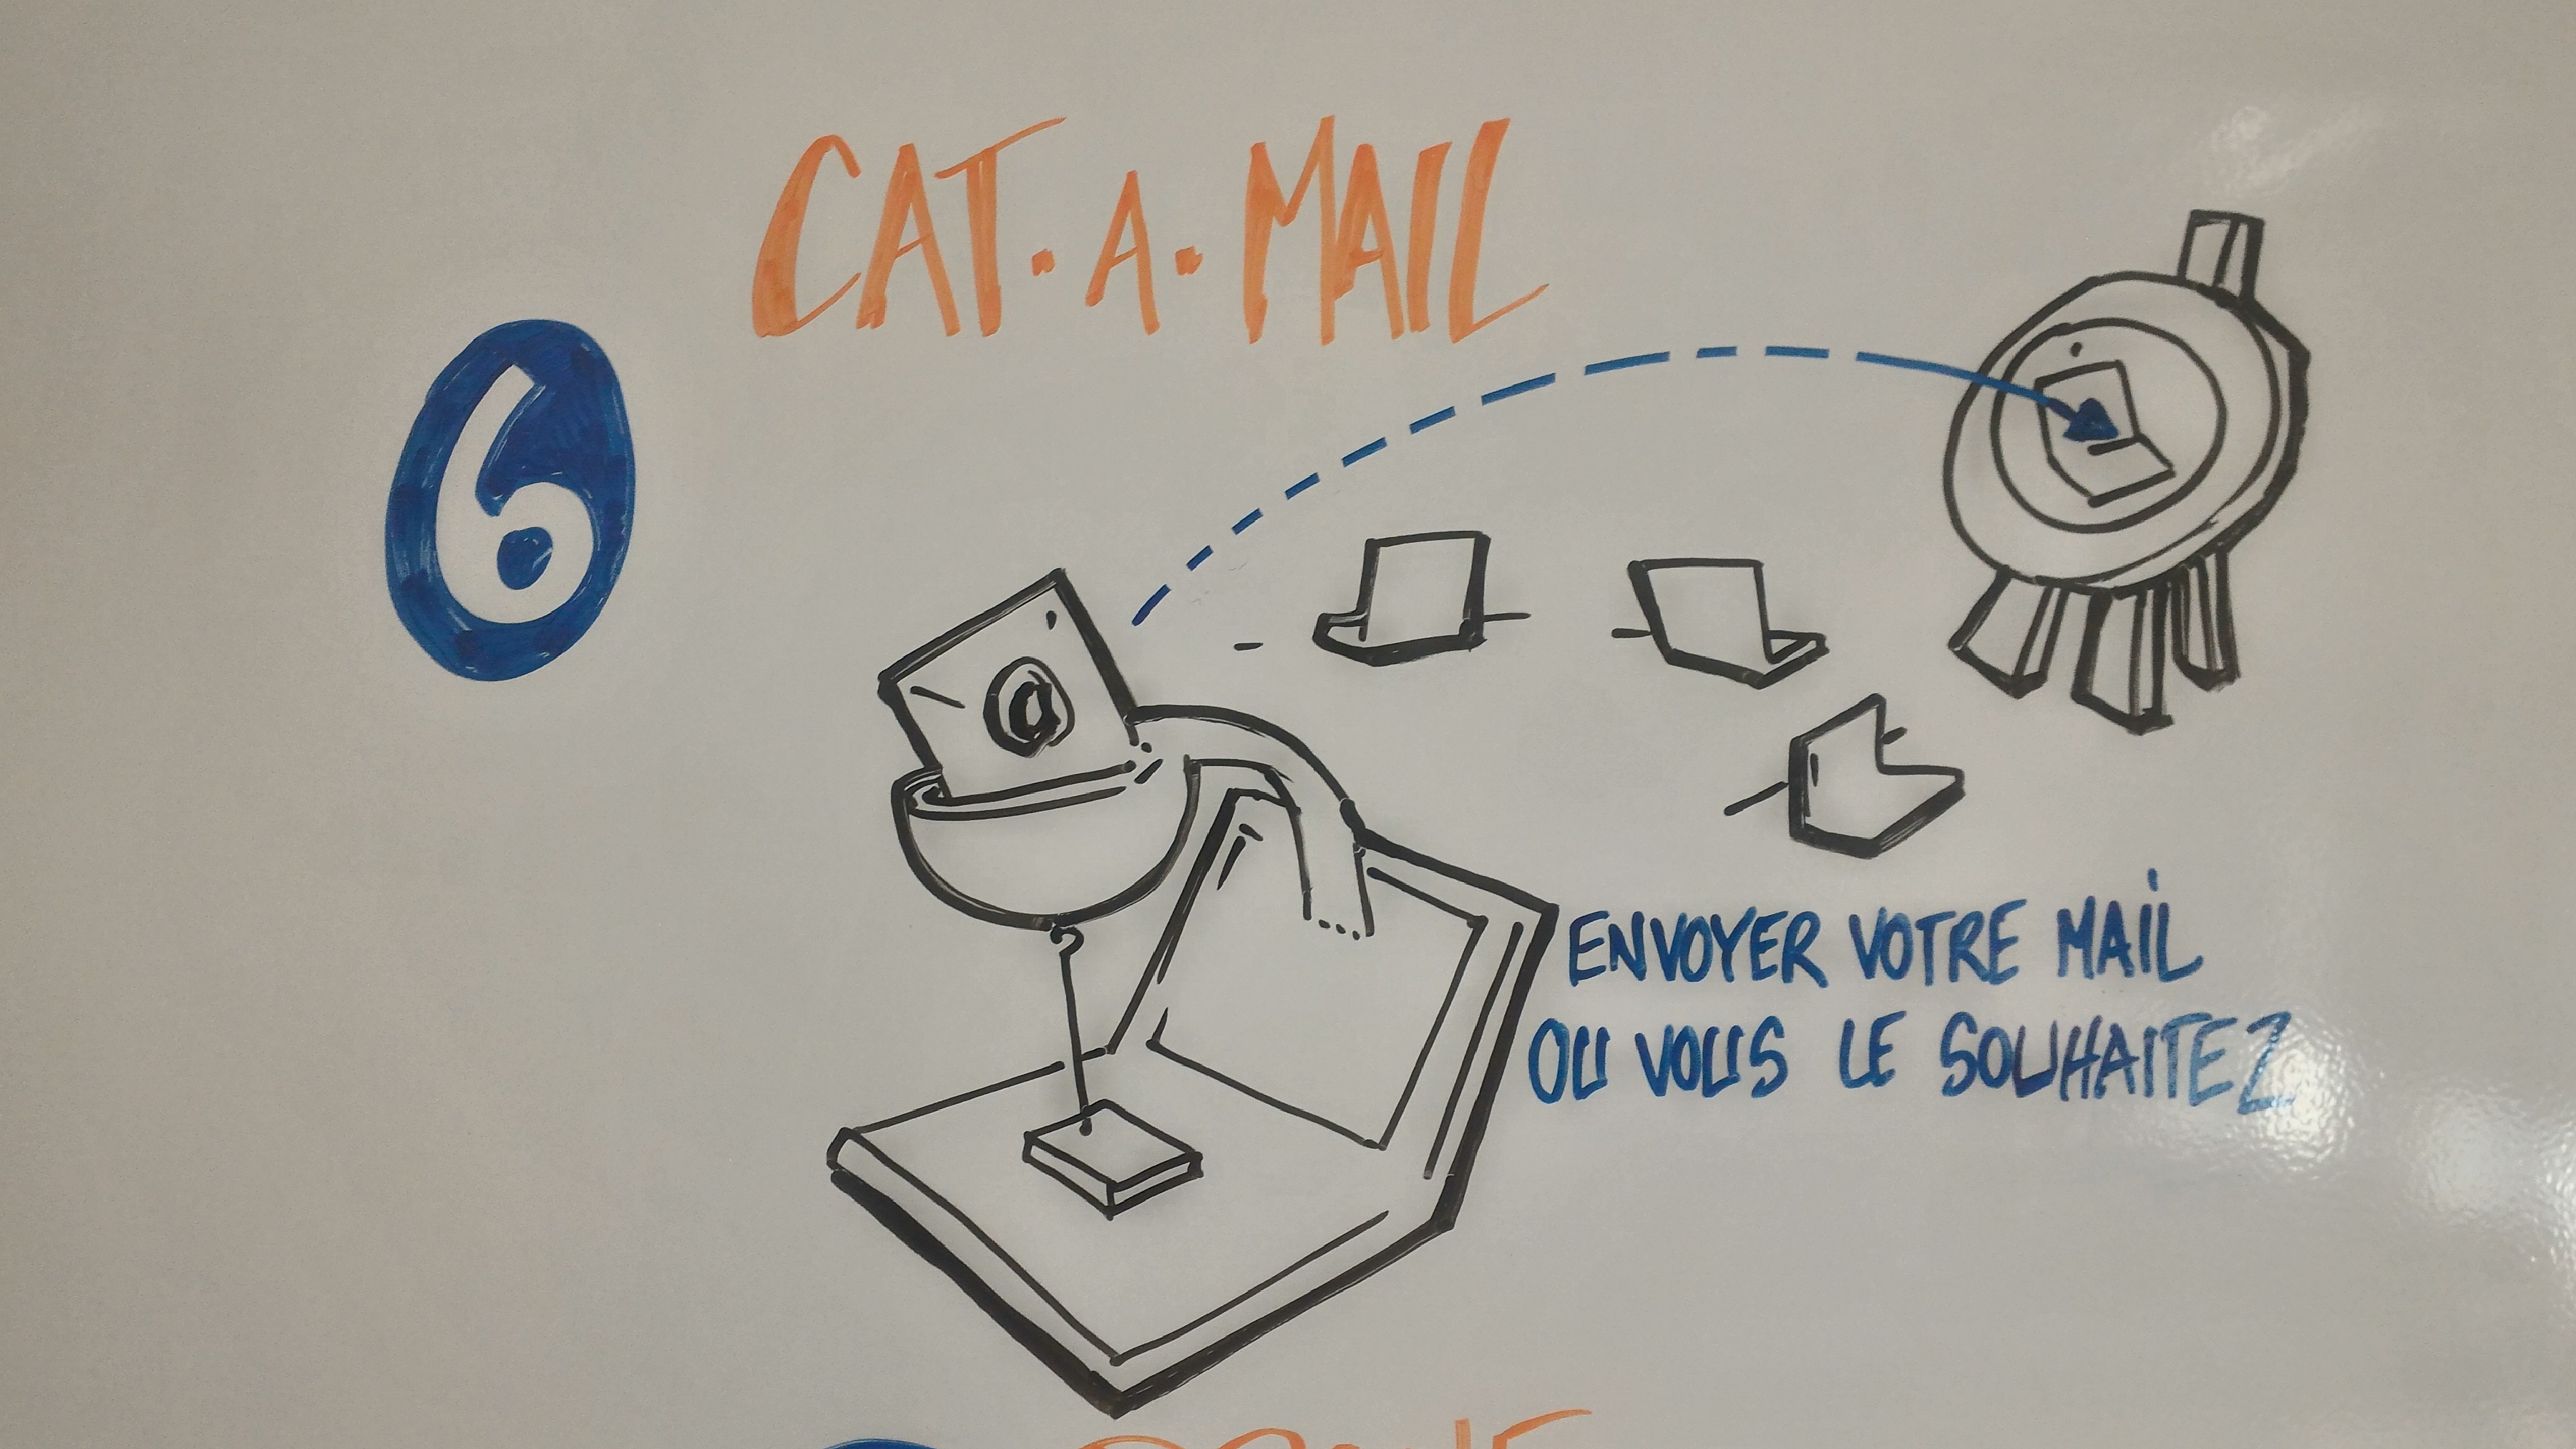 CAT. A. MAIL
6
@
ENVOYER VOTRE MAIL
OU VOUS LE SOUHAITEZ